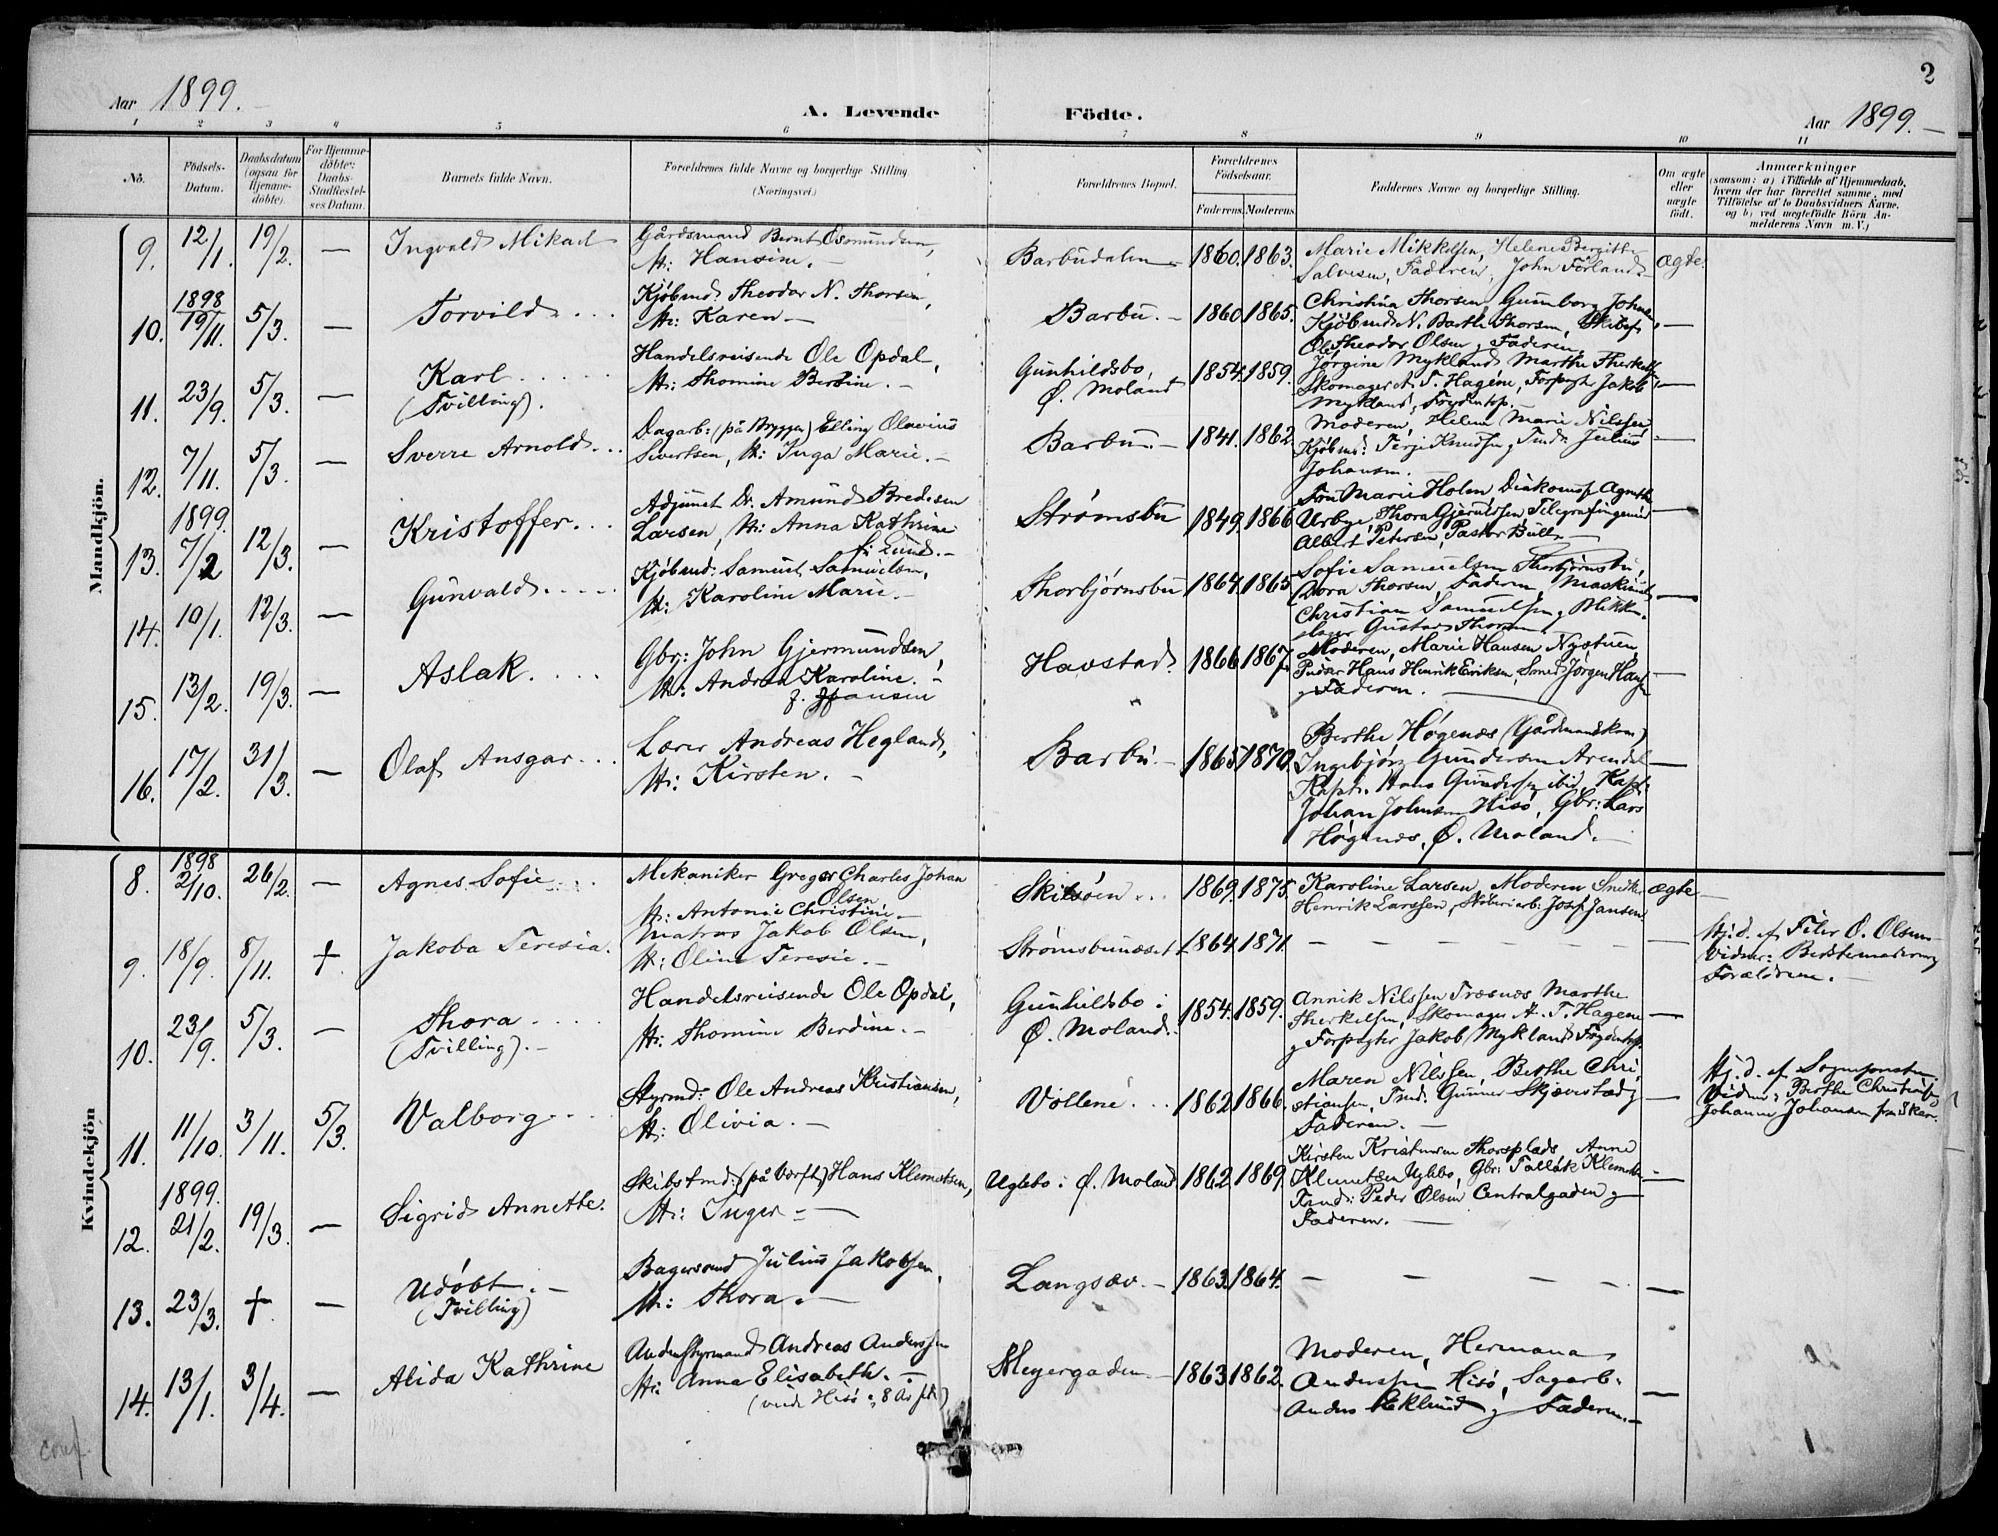 2
Aar 1899.
A. Levende Födte.
Aar 1899.
1 2 3 4 5 6 7 8 9 10 11
No.
Födsels-Datum.
Daabsdatum (ogsaa for Hjemme-döbte).
For Hjemme-döbte: Daabs-Stadfæstel-ses Datum.
Barnets fulde Navn.
Forældrenes fulde Navne og borgerlige Stilling (Næringsvei.)
Forældrenes Bopæl.
Forældrenes Födselsaar.
Faderens. Moderens.
Faddernes Navne og borgerlige Stilling.
Om ægte eller uægte födt.
Anmærkninger
(saasom: a) i Tilfælde af Hjemmedaab,
hvem der har forrettet samme, med
Tilföielse af to Daabsvidners Navne,
og b) ved uægtefödte Börn An-
melderens Navn m. V.)
Mandkjön.
9. 12/1. 19/2. — Ingvald Mikael
Gårdsmand Bernt Osmundsen,
H: Hansine. —
Barbudalen 1860. 1863.
Marie Mikkelsen, Helene Bergitte
Salvesen, Faderen, John Förland
ægte.
10. 1898 19/11. 5/3. — Torvild...
Kjöbmd. Theodor N. Thorsen,
H: Karen —
Barbu. — 1860. 1865.
Christina Thorsen, Gunborg Johnsen,
Kjöbmd N. Barth Thorsen, Skibsf.
Ole Theodor Olsen, Faderen. —
11. 23/9. 5/3. — Karl.....
(Tvilling).
Handelsreisende Ole Opdal,
H: Thomine Berdine. —
Gunhildsbo,
Ø. Moland 1854. 1859.
Jørgine Mykland, Marthe Therkelsen,
Skomager A. T. Hagene, Forpagt. Jakob
Mykland, —
12. 7/11. 5/3. — Sverre Arnold...
Dagarb: (på Bryggen) Elling Olavius
Sivertsen, H: Inga Marie. —
Barbu. — 1841. 1862.
Moderen, Helene Marie Nilssen,
Kjöbmd: Terje Knudsen, Tmd: Julius
Johansen. —
13. 1899. 7/2 12/3. — Kristoffer...
Adjunct Dr. Amund Bredesen
Larsen, H: Anna Kathrine
f: Lund. —
Strømsbu 1849. 1866
Fru Marie Holen, Diakonisse Agnethe
Urbye, Thora Gjerulssen, Telegrafingeniør
Albert Petersen, Pastor Bull. —
14. 10/1. 12/3. — Gunvald.....
Kjöbmd: Samuel Samuelsen,
H: Karoline Marie. —
Thorbjørnsbu 1864. 1865
Sofie Samuelsen Thorbjørnsbu,
Dora Thorsen, Faderen, Maskinist
Christian Samuelsen, Blikken-
slager Gustav Thorsen.
15. 13/2. 19/3. — Aslak.....
Gbr: John Gjermundsen,
H: Andrea Karoline. —
f. Hansen
Havstad 1866. 1867
Moderen, Marie Hansen Nystuen,
Pudser Hans Henrik Eriksen, Smed Jørgen Hansen
og Faderen. —
16. 17/2. 31/3. — Olaf Ansgar...
Lærer Andreas Hegland,
H: Kirsten. —
Barbu. — 1865. 1870.
Berthe Høgenæs (Gårdmandskone)
Ingebjørg Gundersen Arendal
Kapt. Hans Gundersen ibid, Kapt:
Johan Johnsen Hisø, Gbr: Lars
Høgenæs, Ø. Moland. —
Kvindekjön
8. 1898 2/10. 26/2. — Agnes Sofie...
Mekaniker Greger Charles Johan
Olsen
H: Antonie Christine —
Skilsöen... 1869. 1875.
Karoline Larsen, Moderen, Snedker
Henrik Larssen, Skoberiarb: Josef Jansen
ægte —
9. 18/9. 8/11. + Jakoba Teresia.
Matros Jakob Olsen,
H: Oline Teresie. —
Strømsbunæset 1864. 1871.
Hj. d. af Peter O. Olsen
Vidner: Bedstemoderen og
Forældrene. —
10. 23/9. 5/3. — Thora.....
(Tvilling). —
Handelsreisende Ole Opdal,
H: Thomine Berdine. —
Gunhildsbo i
Ø. Moland. 1854. 1859.
Annik Nilssen Træsnæs, Marthe
Therkelsen, Skomager A. T. Hagene
og Forpagter Jakob Mykland
11. 11/10. 3/11. 5/3. Valborg....
Styrmd: Ole Andreas Kristiansen,
H: Olivia. —
Vollene... 1862. 1866.
Maren Nilssen, Berthe Chri-
stiansen, Tmd: Gunner Skjævestad og
Faderen. —
Hj. d. af Sognepresten,
Vidner: Berthe Christians
Johanne Johansen
12. 1899. 21/2. 19/3. — Sigrid Annette.
Skibstmd: (på Værft) Hans Klemetsen,
H: Inger. —
Uglebo i Ø. Moland 1862. 1869.
Kirsten Kristensen Thorsplads, Anne
Klemetsen Uglebo, Gbr: Tallak Klemetsen
Tmd: Peder Olsen Centralgaden og
Faderen. —
13. 23/3. + — Udøbt. —
(Tvilling)
Bagersvend Julius Jakobsen,
H: Thora. —
Langsæv. — 1863. 1864.
14. 13/1. 3/4. — Alida Kathrine
Andenstyrmand Andreas Anderssen
H: Anna Elisabeth. —
Meyergaden. — 1863. 1862.
Moderen, Hermana
Anderssen Hisø, Sagarb:
Anders Eklund og Faderen. —
conf.